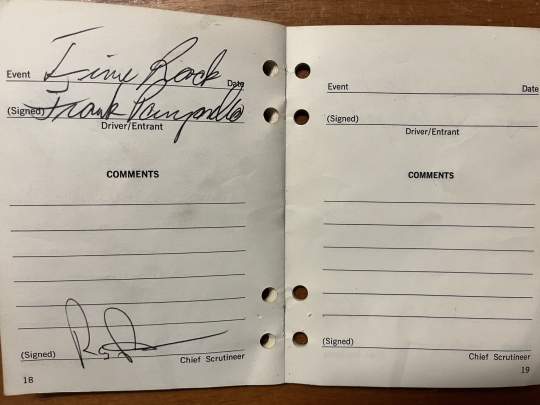 Lime Rock
Event Date
(Signed) Frank
Driver/Entrant
COMMENTS
(Signed)
Chief Scrutineer
18
Event Date
(Signed)
Driver/Entrant
COMMENTS
(Signed)
Chief Scrutineer
19